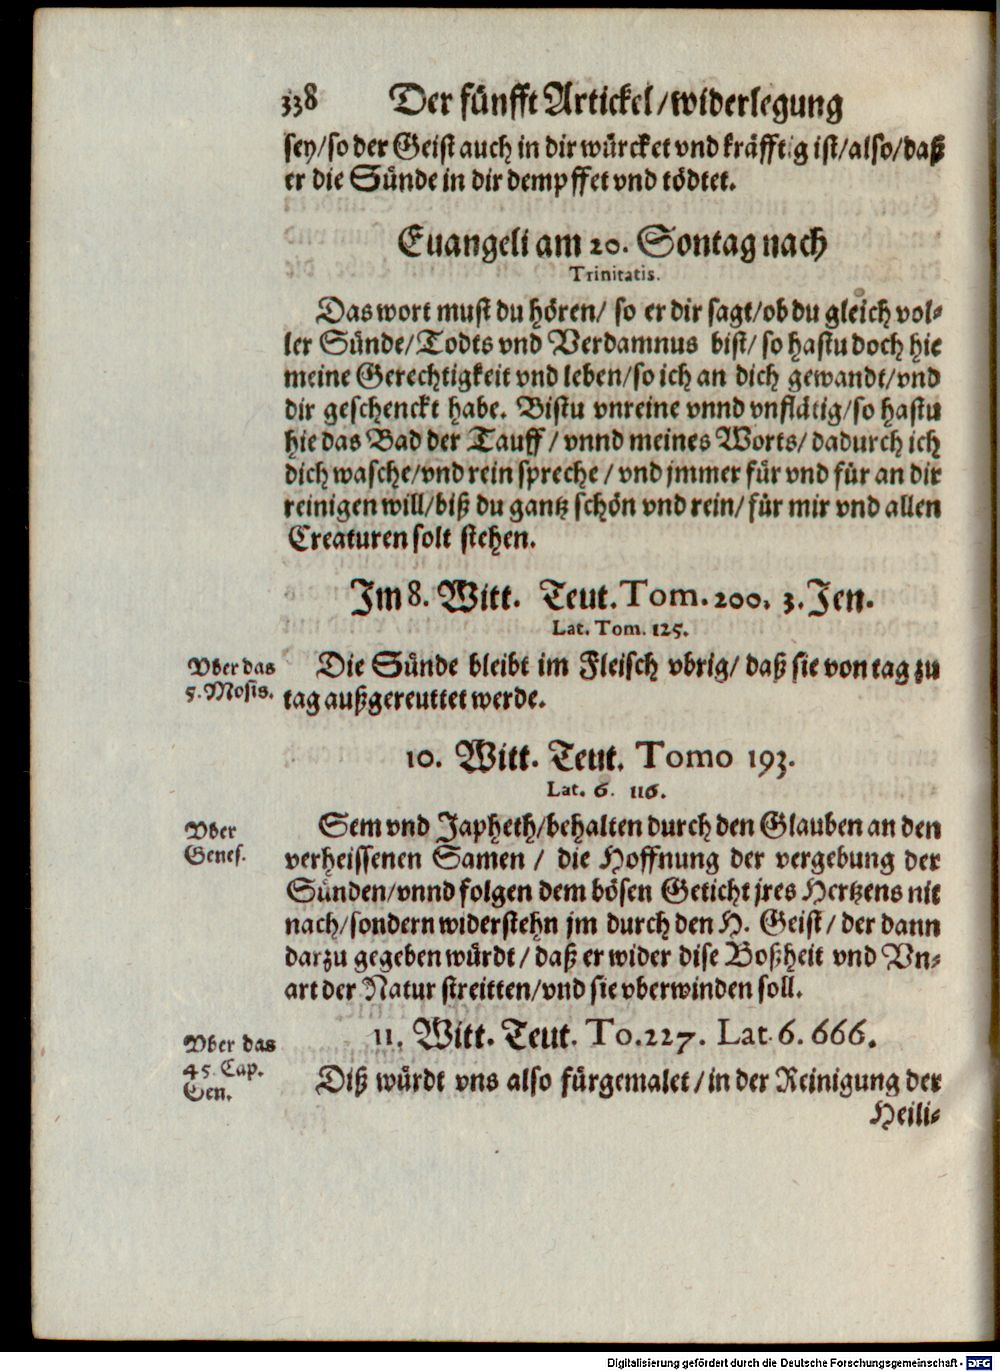 338 Der fünfft Artickel/widerlegung
sey/so der Geist auch in dir würcket vnd kräfftig ist/also/daß
er die Sünde in dir dempffet vnd tödtet.
Euangeli am 20. Sontag nach
Trinitatis.
Das wort must du hören/ so er dir sagt/ob du gleich vol-
ler Sünde/Todts vnd Verdamnus bist/ so hastu doch hie
meine Gerechtigkeit vnd leben/so ich an dich gewandt/vnd
dir geschenckt habe. Bistu vnreine vnnd vnflätig/so hastu
hie das Bad der Tauff / vnnd meines Worts/ dadurch ich
dich wasche/vnd rein spreche / vnd jmmer für vnd für an dir
reinigen will/biß du gantz schön vnd rein/ für mir vnd allen
Creaturen solt stehen.
Jm 8. Witt. Teut. Tom. 200. 3. Jen.
Lat. Tom. 125.
Vber das
5. Mosis.
Die Sünde bleibt im Fleisch vbrig/ daß sie von tag zu
tag außgereuttet werde.
10. Witt. Teut. Tomo 193.
Lat. 6. 116.
Vber
Genes.
Sem vnd Japheth/behalten durch den Glauben an den
verheissenen Samen / die Hoffnung der vergebung der
Sünden/vnnd folgen dem bösen Geticht jres Hertzens nit
nach/sondern widerstehn jm durch den H. Geist/ der dann
darzu gegeben würdt / daß er wider dise Boßheit vnd Vn-
art der Natur streitten/vnd sie vberwinden soll.
11. Witt. Teut. To. 227. Lat. 6. 666.
Vber das
45. Cap.
Gen.
Diß würdt vns also fürgemalet/in der Reinigung der
Heili-
Digitalisierung gefördert durch die Deutsche Forschungsgemeinschaft - DFG